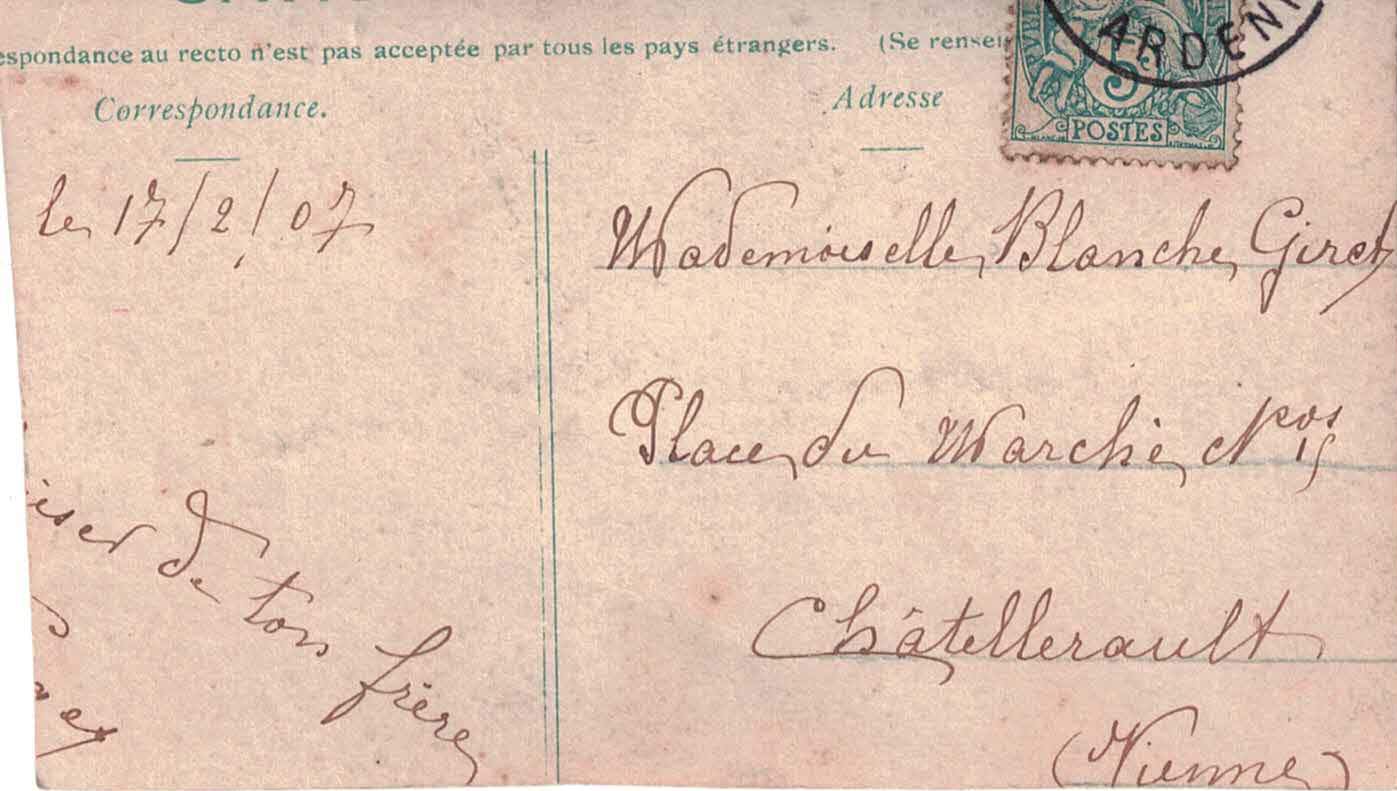 espondance au recto n'est pas acceptée par tous les pays étrangers. (Se rensei
Correspondance.
Adresse
ARDENN
5
POSTES
le 17/2/07
Mademoiselle Blanche Giret
Place du Marché Nos 15
Châtellerault
(Vienne)
de ton frère